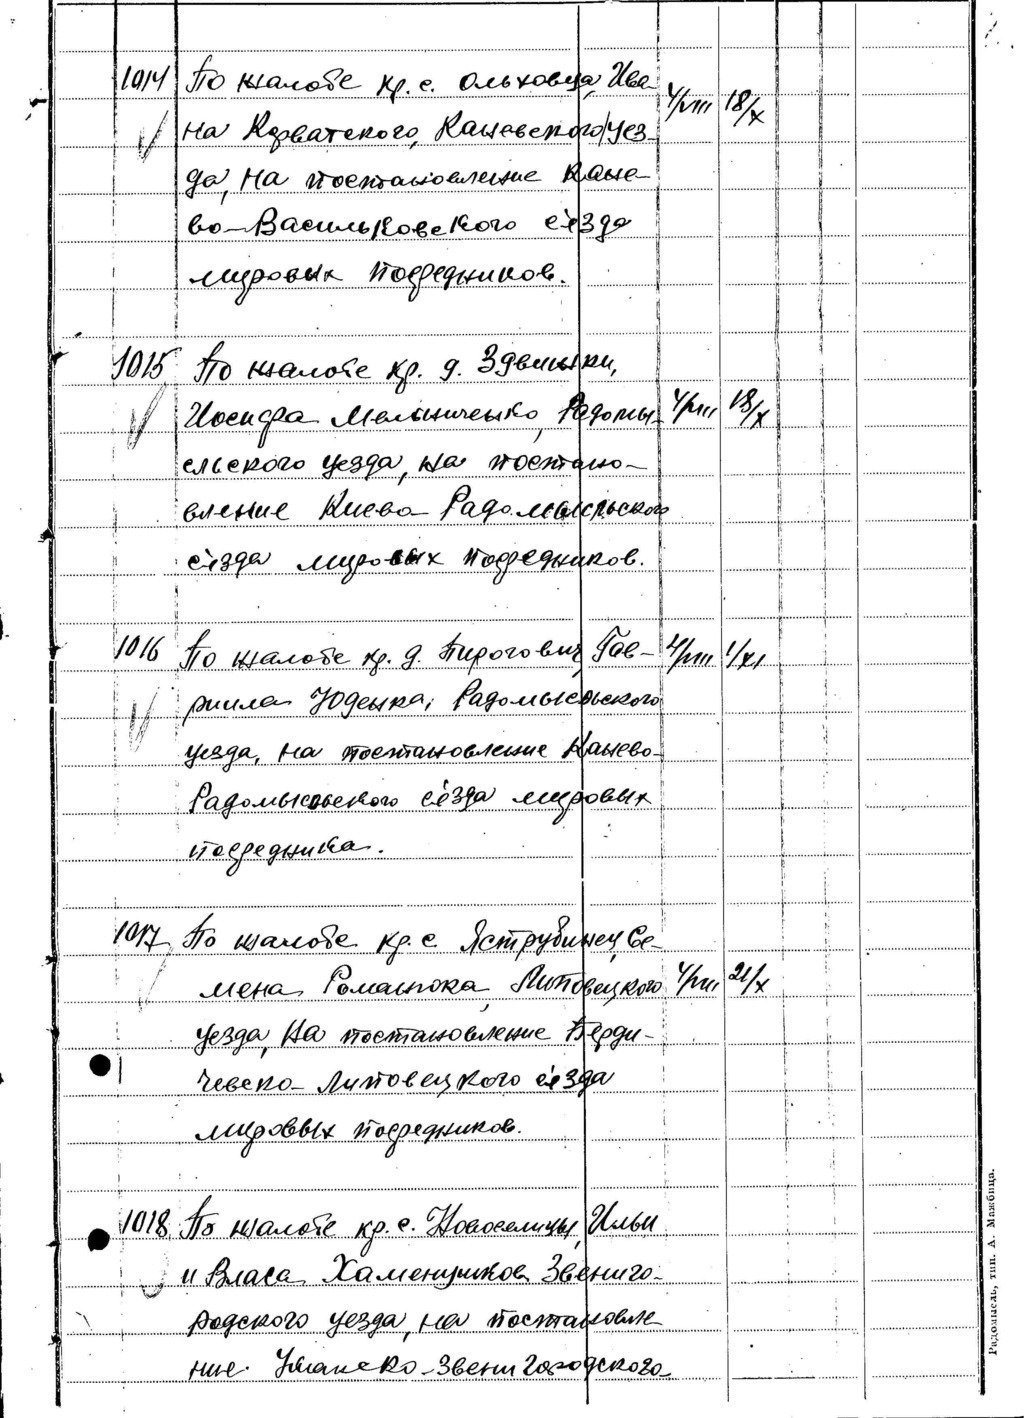 1014 По жалобе кр. с. Ольховца, Ива- 4/VIII 18/X
на Корватского, Каневского уез-
да, на постановление Кане-
во-Васильковского съезда
мировых посредников.
1015 По жалобе кр. д. Здвижки,
Иосифа Мельниченко, Радомы- 4/VIII 18/X
сльского уезда, на постано-
вление Киево-Радомысльского
съезда мировых посредников.
1016 По жалобе кр. д. Пирогович, Гав- 4/VIII 1/XI
риила Юденка, Радомысльского
уезда, на постановление Канево-
Радомысльского съезда мировых
посредника.
1017 По жалобе кр. с. Яструбинец, Се-
мена Романюка, Липовецкого 4/VIII 21/X
уезда, на постановление Берди-
чевско-Липовецкого съезда
мировых посредников.
1018 По жалобе кр. с. Новоселицы, Ильи
и Власа Звениго-
родского уезда, на постановле-
ние Уманско-Звенигородского
Радомысль, тип. А. Мажбица.